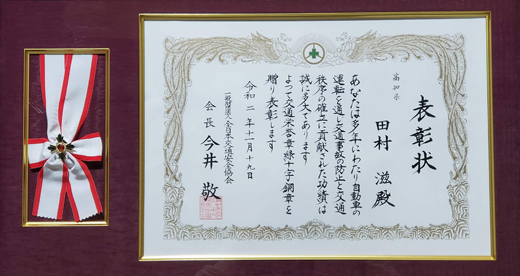 表彰状
高知県
田村 滋殿
あなたは多年にわたり自動車の
運転を通じ交通事故の防止と交通
秩序の確立に貢献された功績は
誠に多大であります
よって交通栄誉章緑十字銅章を
贈り表彰します
令和二年十一月十九日
一般財団法人全日本交通安全協会
会長 今井 敬